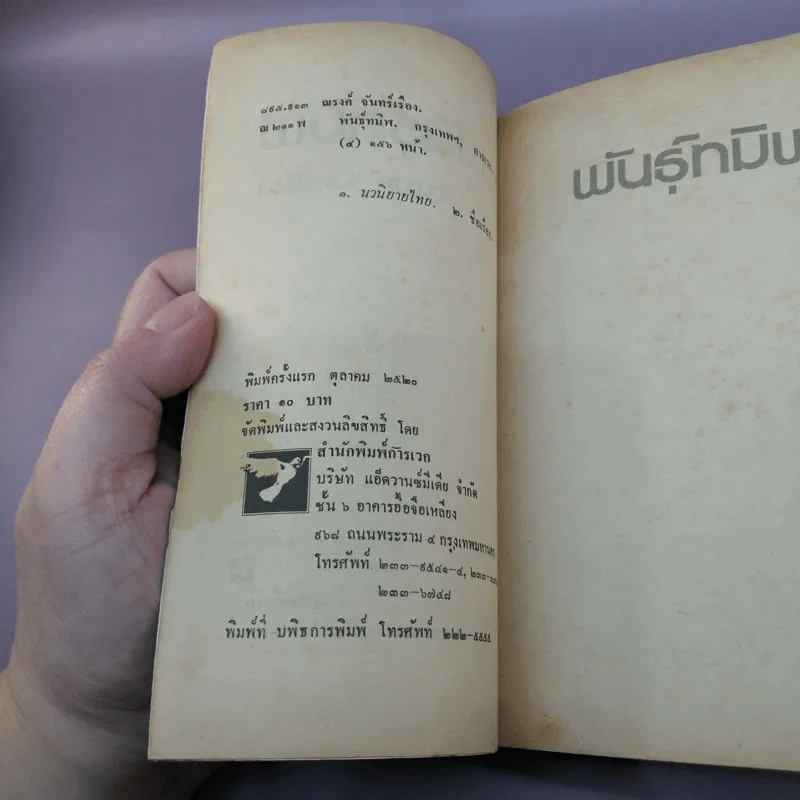 ๘๙๕.๙๑๓ ณรงค์ จันทร์เรือง.
ณ ๒๑๑ พ พันธุ์ทมิฬ. กรุงเทพฯ, การเวก,
(๔) ๑๕๖ หน้า.
๑. นวนิยายไทย. ๒. ชื่อเรื่อง.
พิมพ์ครั้งแรก ตุลาคม ๒๕๒๐
ราคา ๑๐ บาท
จัดพิมพ์และสงวนลิขสิทธิ์ โดย
สำนักพิมพ์การเวก
บริษัท แอ็ดวานซ์มีเดีย จำกัด
ชั้น ๖ อาคารอื้อจือเหลียง
๙๖๘ ถนนพระราม ๔ กรุงเทพมหานคร
โทรศัพท์ ๒๓๓-๙๕๔๑-๔, ๒๓๓-
๒๓๓-๖๗๔๘
พิมพ์ที่ บพิธการพิมพ์ โทรศัพท์ ๒๒๒-๕๕๕๕
พันธุ์ทมิฬ